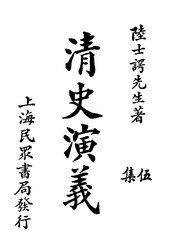 陸士諤先生著
伍集
清史演義
上海民眾書局發行